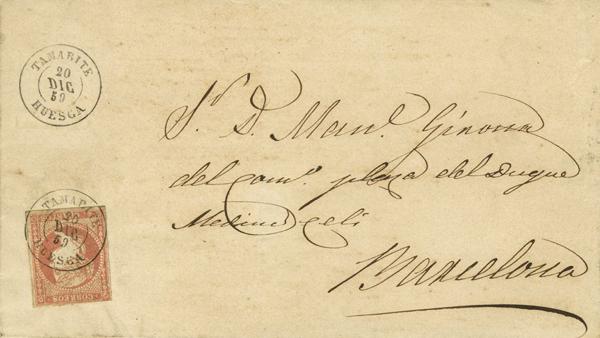 TAMARITE
20
DIC
59
HUESCA
Sr. D. Manl. Girona
del como. plaza del Duque
Medinaceli
Barcelona
TAMARITE
20
DIC
59
HUESCA
CORREOS